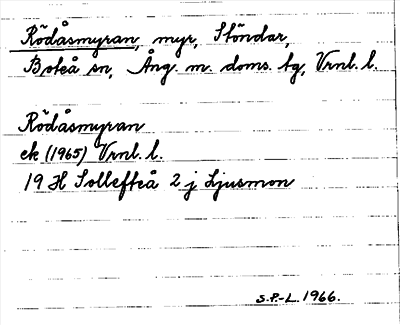 Rödåsmyran, myr, Stöndar,
Boteå sn, Ång. m. doms. tg, Vrnl. l.
Rödåsmyran
ek (1965) Vrnl. l.
19 H Sollefteå 2 j Ljusmon
S.P.-L. 1966.